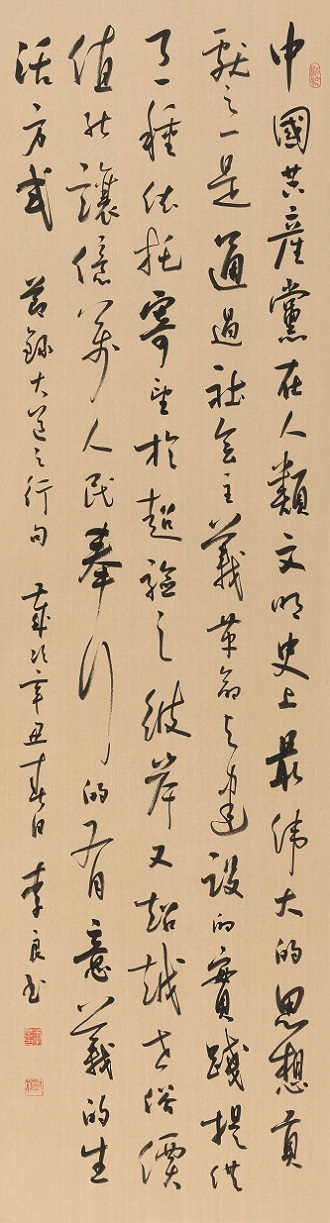 中國共産黨在人類文明史上最偉大的思想貢
獻之一是通過社会主義革命与建設的實踐提供
了一種依托寄望於超驗之彼岸又超越世俗價
值能讓億萬人民奉行的有意義的生
活方式 節録大道之行句 歲次辛丑春日 李良书